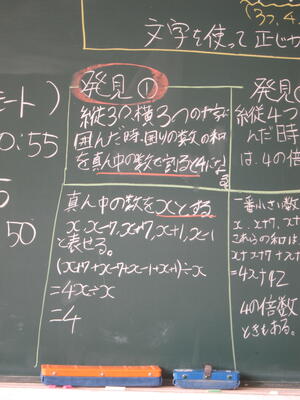 (3ツ,4
文字を使って正しい
発見①
縦3つ、横3つの十字に
囲んだ時、周りの数の和
を真ん中の数で割ると4になる
真ん中の数をxとする
x、x-7、x+7、x+1、x-1
と表せる。
(x+7+x-7+x-1+x+1)÷x
=4x÷x
=4
ート)
0:55
50
発見
縦4つ
んだ時
は、4の倍
一番小さい数
x、x+7、x+
これらの和は
x+x+7+x+
=4x+42
4の倍数
ときもある。